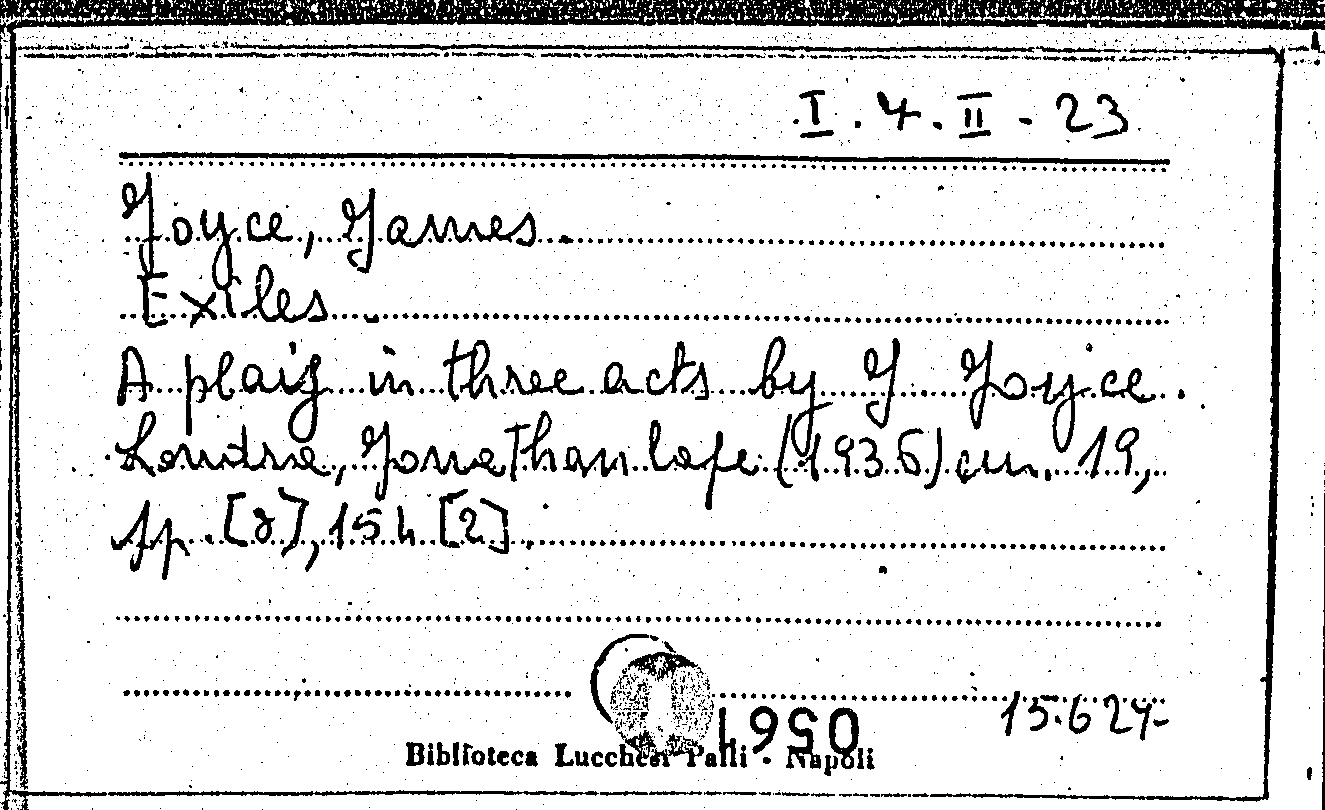 I.4.II-23
Joyce, James.
Exiles.
A plaiy in three acts by J Joyce.
Londra, Jonathan Cape (1936) cm. 19,
pp. [8], 154 [2].
0561
15.624-
Biblioteca Lucchesi Palli - Napoli